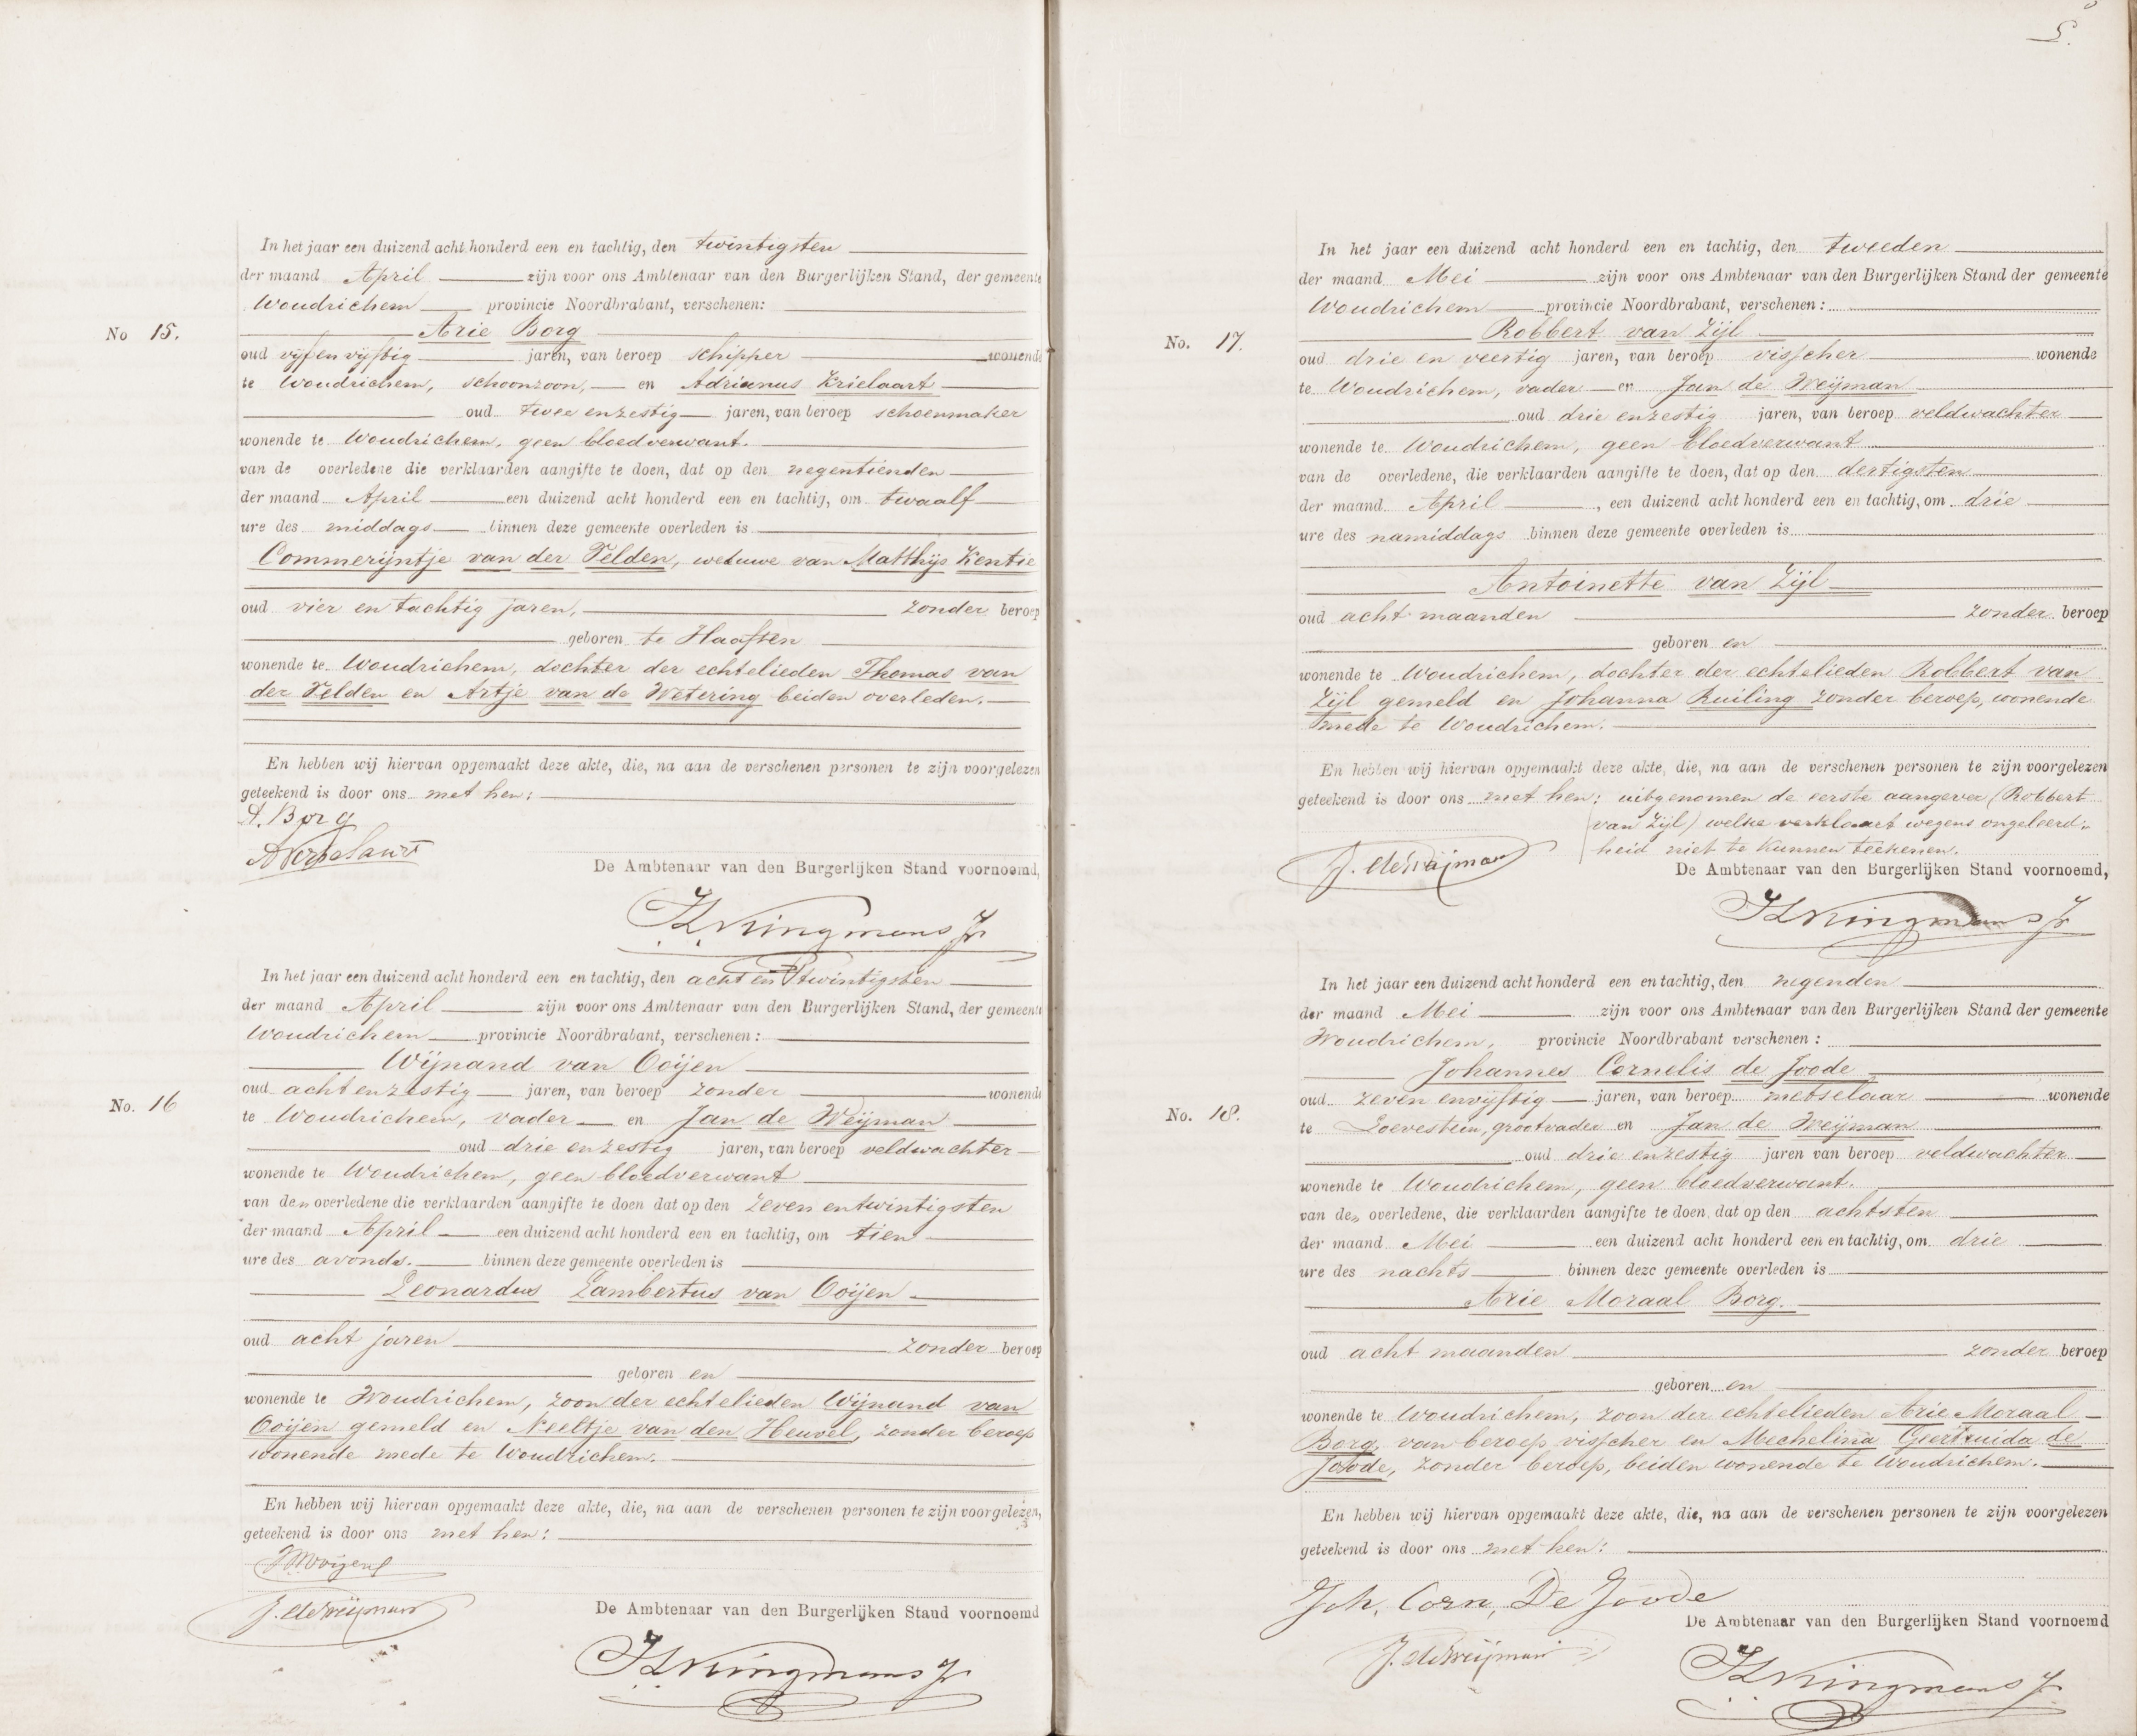 In het jaar een duizend acht honderd een en tachtig, den twintigsten
der maand April zijn voor ons Ambtenaar van den Burgerlijken Stand, der gemeente
Woudrichem provincie Noordbrabant, verschenen:
Arie Borg
No 15.
oud vijf en vijftig jaren, van beroep schipper wonende
te Woudrichem, schoonzoon, en Adrianus Krielaart
oud twee en zestig jaren, van beroep schoenmaker
wonende te Woudrichem, geen bloedverwant.
van de overledene die verklaarden aangifte te doen, dat op den negentienden
der maand April een duizend acht honderd een en tachtig, om twaalf
ure des middags binnen deze gemeente overleden is
Commerijntje van der Velden, weduwe van Matthijs Kentie
oud vier en tachtig jaren, zonder beroep
geboren te Haaften
wonende te Woudrichem, dochter der echtelieden Thomas van
der Velden en Artje van de Wetering beiden overleden.
En hebben wij hiervan opgemaakt deze akte, die, na aan de verschenen personen te zijn voorgelezen
geteekend is door ons met hen:
A. Borg
De Ambtenaar van den Burgerlijken Stand voornoemd,
Kingmans Jr
In het jaar een duizend acht honderd een en tachtig, den acht en twintigsten
der maand April zijn voor ons Ambtenaar van den Burgerlijken Stand, der gemeente
Woudrichem provincie Noordbrabant, verschenen:
Wijnand van Ooijen
No. 16
oud acht en zestig jaren, van beroep zonder wonende
te Woudrichem, vader en Jan de Weijman
oud drie en zestig jaren, van beroep veldwachter
wonende te Woudrichem, geen bloedverwant
van den overledene die verklaarden aangifte te doen dat op den zeven en twintigsten
der maand April een duizend acht honderd een en tachtig, om tien
ure des avonds. binnen deze gemeente overleden is
Leonardus Lambertus van Ooijen
oud acht jaren zonder beroep
geboren en
wonende te Woudrichem, zoon der echtelieden Wijnand van
Ooijen gemeld en Neeltje van den Heuvel, zonder beroep
wonende mede te Woudrichem.
En hebben wij hiervan opgemaakt deze akte, die, na aan de verschenen personen te zijn voorgelezen,
geteekend is door ons met hen:
J. de Weijman
De Ambtenaar van den Burgerlijken Stand voornoemd
Kingmans Jr
5.
In het jaar een duizend acht honderd een en tachtig, den tweeden
der maand Mei zijn voor ons Ambtenaar van den Burgerlijken Stand der gemeente
Woudrichem provincie Noordbrabant, verschenen:
Robbert van Zijl
No. 17.
oud drie en veertig jaren, van beroep visscher wonende
te Woudrichem, vader en Jan de Weijman
oud drie en zestig jaren, van beroep veldwachter
wonende te Woudrichem, geen bloedverwant
van de overledene, die verklaarden aangifte te doen, dat op den dertigsten
der maand April, een duizend acht honderd een en tachtig, om drie
ure des namiddags binnen deze gemeente overleden is
Antoinette van Zijl
oud acht maanden zonder beroep
geboren en
wonende te Woudrichem, dochter der echtelieden Robbert van
Zijl gemeld en Johanna Ruiling zonder beroep, wonende
mede te Woudrichem.
En hebben wij hiervan opgemaakt deze akte, die, na aan de verschenen personen te zijn voorgelezen
geteekend is door ons met hen: uitgenomen de eerste aangever (Robbert
van Zijl) welke verklaart wegens ongeleerd„
heid niet te kunnen teekenen.
J. de Weijman
De Ambtenaar van den Burgerlijken Stand voornoemd,
Kingmans Jr
In het jaar een duizend acht honderd een en tachtig, den negenden
der maand Mei zijn voor ons Ambtenaar van den Burgerlijken Stand der gemeente
Woudrichem, provincie Noordbrabant verschenen:
Johannes Cornelis de Joode
No. 18.
oud zeven en vijftig jaren, van beroep metselaar wonende
te Loevestein, grootvader en Jan de Weijman
oud drie en zestig jaren van beroep veldwachter
wonende te Woudrichem, geen bloedverwant.
van den overledene, die verklaarden aangifte te doen, dat op den achtsten
der maand Mei een duizend acht honderd een en tachtig, om drie
ure des nachts binnen deze gemeente overleden is
Arie Moraal Borg.
oud acht maanden zonder beroep
geboren en
wonende te Woudrichem, zoon der echtelieden Arie Moraal
Borg, van beroep visscher en Mechelina Geertruida de
Joode, zonder beroep, beiden wonende te Woudrichem.
En hebben wij hiervan opgemaakt deze akte, die, na aan de verschenen personen te zijn voorgelezen
geteekend is door ons met hen:
Joh. Corn, De Joode
De Ambtenaar van den Burgerlijken Stand voornoemd
J. de Weijman
Kingmans Jr